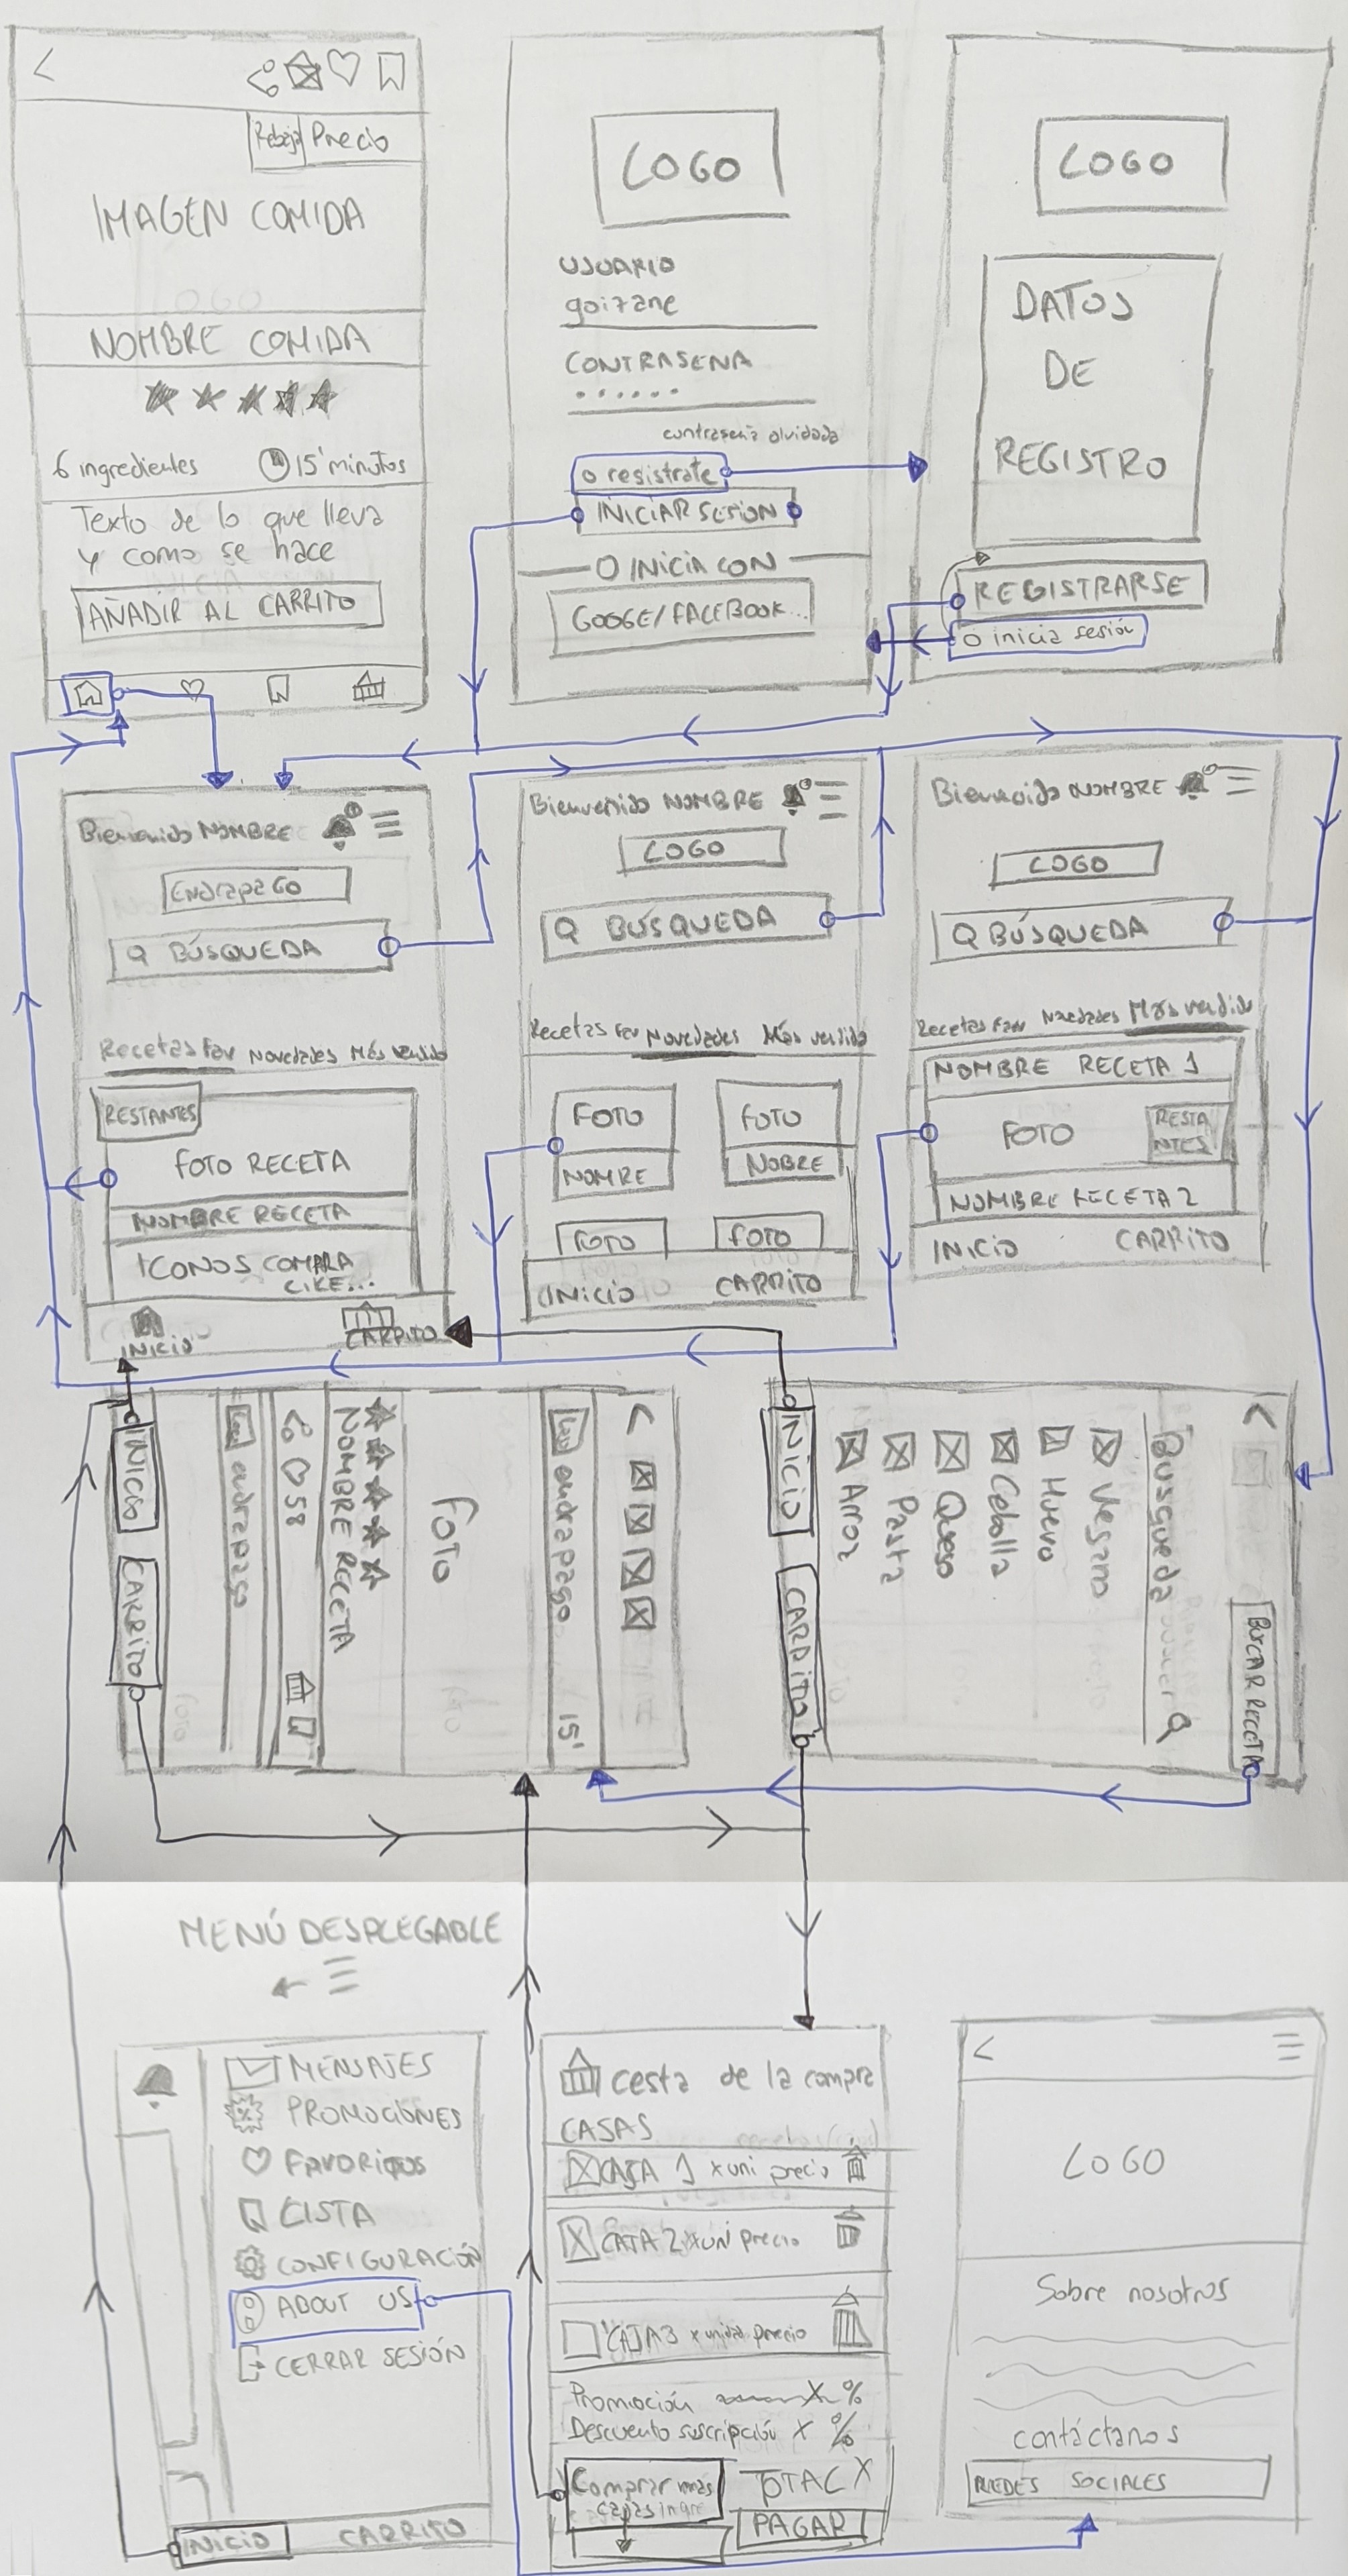 Rebaja Precio
IMAGEN COMIDA
NOMBRE COMIDA
6 ingredientes 15' minutos
Texto de lo que lleva
y como se hace
AÑADIR AL CARRITO
LOGO
USUARIO
goizane
CONTRASENA
contraseña olvidada
o registrate
INICIAR SESION
O INICIA CON
GOOGE/FACEBOOK...
LOGO
DATOS
DE
REGISTRO
REGISTRARSE
o inicia sesión
Bienvenido NOMBRE
Endrapago
BÚSQUEDA
Recetas Fav Novedades Más vendido
RESTANTES
FOTO RECETA
NOMBRE RECETA
ICONOS COMPRA
LIKE...
INICIO CARRITO
Bienvenido NOMBRE
LOGO
BÚSQUEDA
Recetas Fav Novedades Más vendido
FOTO FOTO
NOMRE NOBRE
FOTO FOTO
INICIO CARRITO
Bienvenido NOMBRE
LOGO
BÚSQUEDA
Recetas Fav Novedades Más vendido
NOMBRE RECETA 1
FOTO
RESTA
NTES
NOMBRE RECETA 2
INICIO CARRITO
endrapago 15'
FOTO
NOMBRE RECETA
58
endrapago
INICIO CARRITO
BUSCAR RECETA
Busqueda
Vegano
Huevo
Cebolla
Queso
Pasta
Arroz
INICIO CARRITO
MENÚ DESPLEGABLE
MENSAJES
PROMOCIONES
FAVORITOS
LISTA
CONFIGURACIÓN
ABOUT US
CERRAR SESIÓN
INICIO CARRITO
cesta de la compra
CASAS
CAJA 1 x uni precio
CAJA 2 x uni precio
CAJA 3 x unidad precio
Promoción X %
Descuento suscripción X %
Comprar más
cajas ingre
TOTAL X
PAGAR
LOGO
Sobre nosotros
contáctanos
REDES SOCIALES